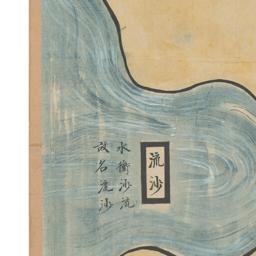 流沙
水衝沙流
故名流沙